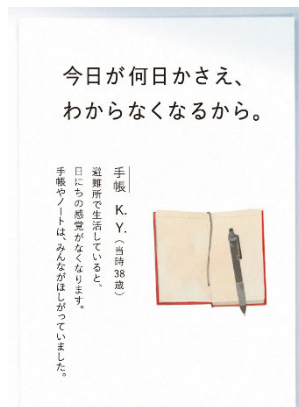 今日が何日かさえ、
わからなくなるから。
手帳 K.Y.（当時38歳）
避難所で生活していると、
日にちの感覚がなくなります。
手帳やノートは、みんながほしがっていました。